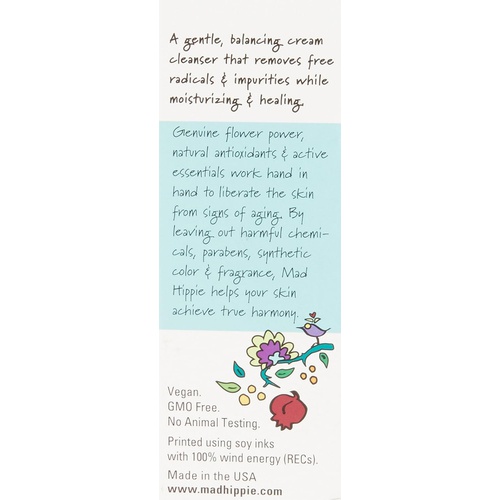 A gentle, balancing cream
cleanser that removes free
radicals & impurities while
moisturizing & healing.
Genuine flower power,
natural antioxidants & active
essentials work hand in
hand to liberate the skin
from signs of aging. By
leaving out harmful chemi-
cals, parabens, synthetic
color & fragrance, Mad
Hippie helps your skin
achieve true harmony.
Vegan.
GMO Free.
No Animal Testing.
Printed using soy inks
with 100% wind energy (RECs).
Made in the USA
www.madhippie.com